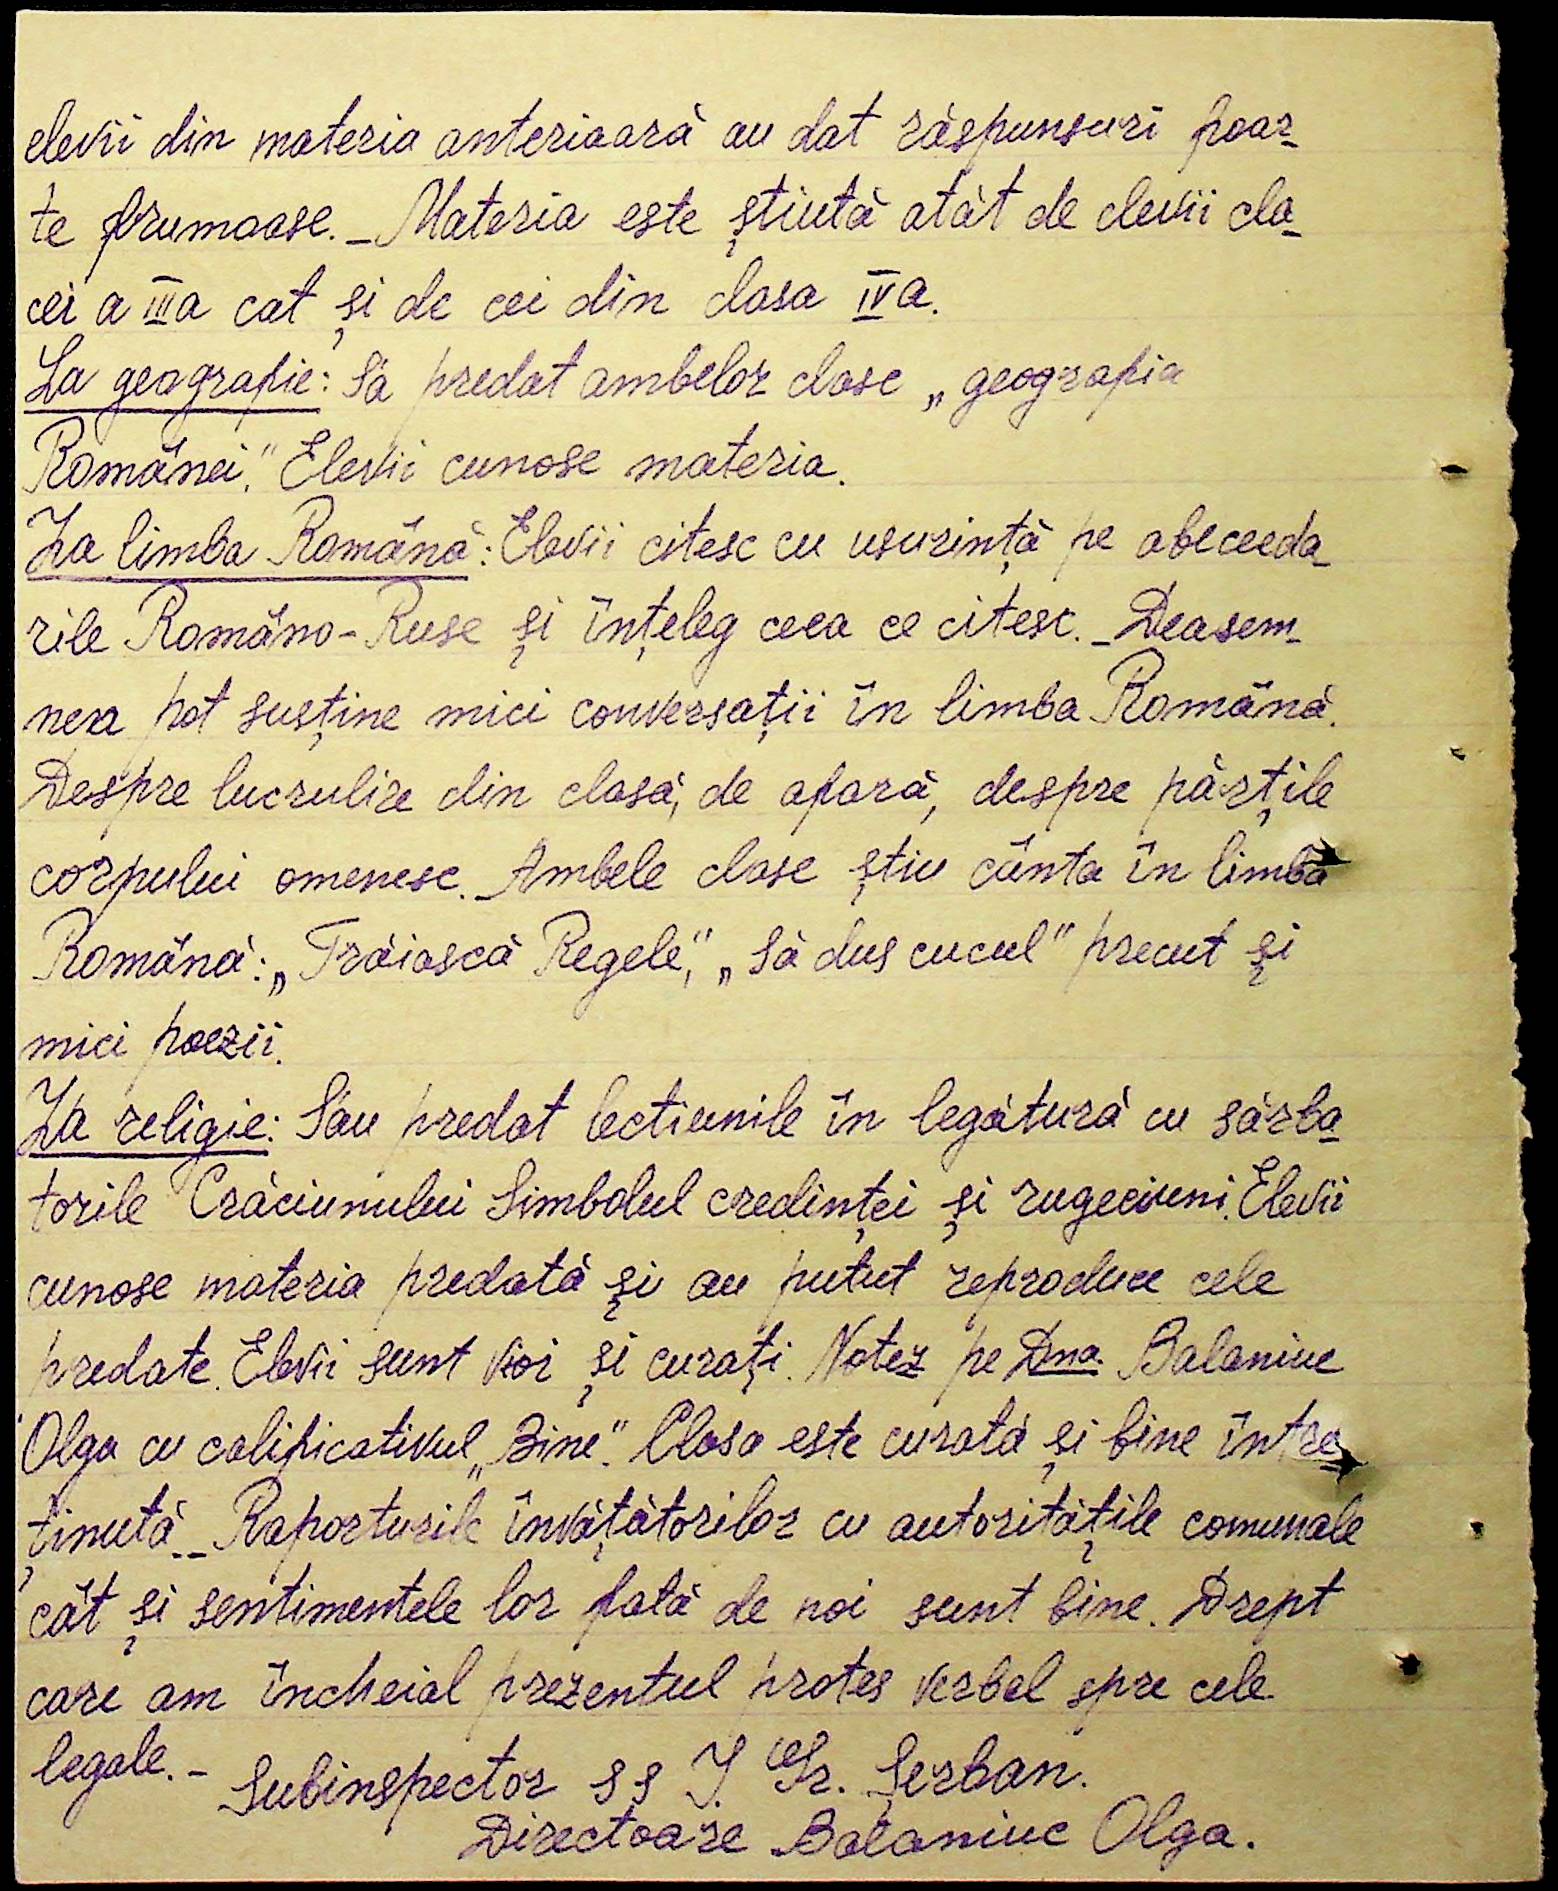 elevii din materia anterioară au dat răspunsuri foar-
te frumoase. – Materia este știută atât de elevii cla-
cei a III a cat și de cei din clasa IV a.
La geografie: Sa predat ambelor clase „geografia
României." Elevii cunosc materia.
La limba Română: Elevii citesc cu usurință pe abeceeda-
rile Româno-Ruse și înțeleg ceea ce citesc. – Deasem-
nea pot susține mici conversații în limba Română.
Despre lucrulire din clasă, de afară, despre părțile
corpului omenesc. Ambele clase știu cânta în limba
Română: „Trăiască Regele", „Să dus cucul" precut și
mici poezii.
La religie: Său predat lectiunile în legătură cu sărba-
torile Crăciunului Simbolul credinței și rugeciuni. Elevii
cunosc materia predată și au putut reproduce cele
predate. Elevii sunt vioi și curați. Notez pe Dna. Balaniuc
Olga cu calificativul „Bine". Clasa este curată și bine între-
ținută. – Raporturile învățătorilor cu autoritățile comunale
cât și sentimentele lor fată de noi sunt bine. Drept
care am încheial prezentul protes verbal spre cele
legale. – Subinspector ss I. Gr. Șerban.
Directoare Balaniuc Olga.